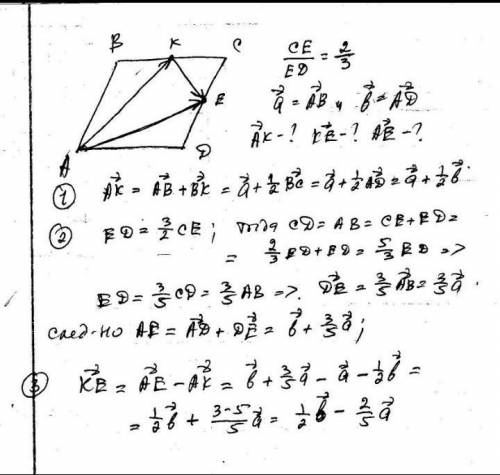 B K C
E
A D
CE/ED = 2/3
a⃗ = AB⃗ и b⃗ = AD⃗
AK⃗ - ? KE⃗ - ? AE⃗ - ?
① AK⃗ = AB⃗ + BK⃗ = a⃗ + 1/2 BC⃗ = a⃗ + 1/2 AD⃗ = a⃗ + 1/2 b⃗
② ED = 3/2 CE; тогда CD = AB = CE + ED =
= 2/3 ED + ED = 5/3 ED =>
ED = 3/5 CD = 3/5 AB =>. DE⃗ = 3/5 AB⃗ = 3/5 a⃗.
след-но AE⃗ = AD⃗ + DE⃗ = b⃗ + 3/5 a⃗;
③ KE⃗ = AE⃗ - AK⃗ = b⃗ + 3/5 a⃗ - a⃗ - 1/2 b⃗ =
= 1/2 b⃗ + 3-5/5 a⃗ = 1/2 b⃗ - 2/5 a⃗